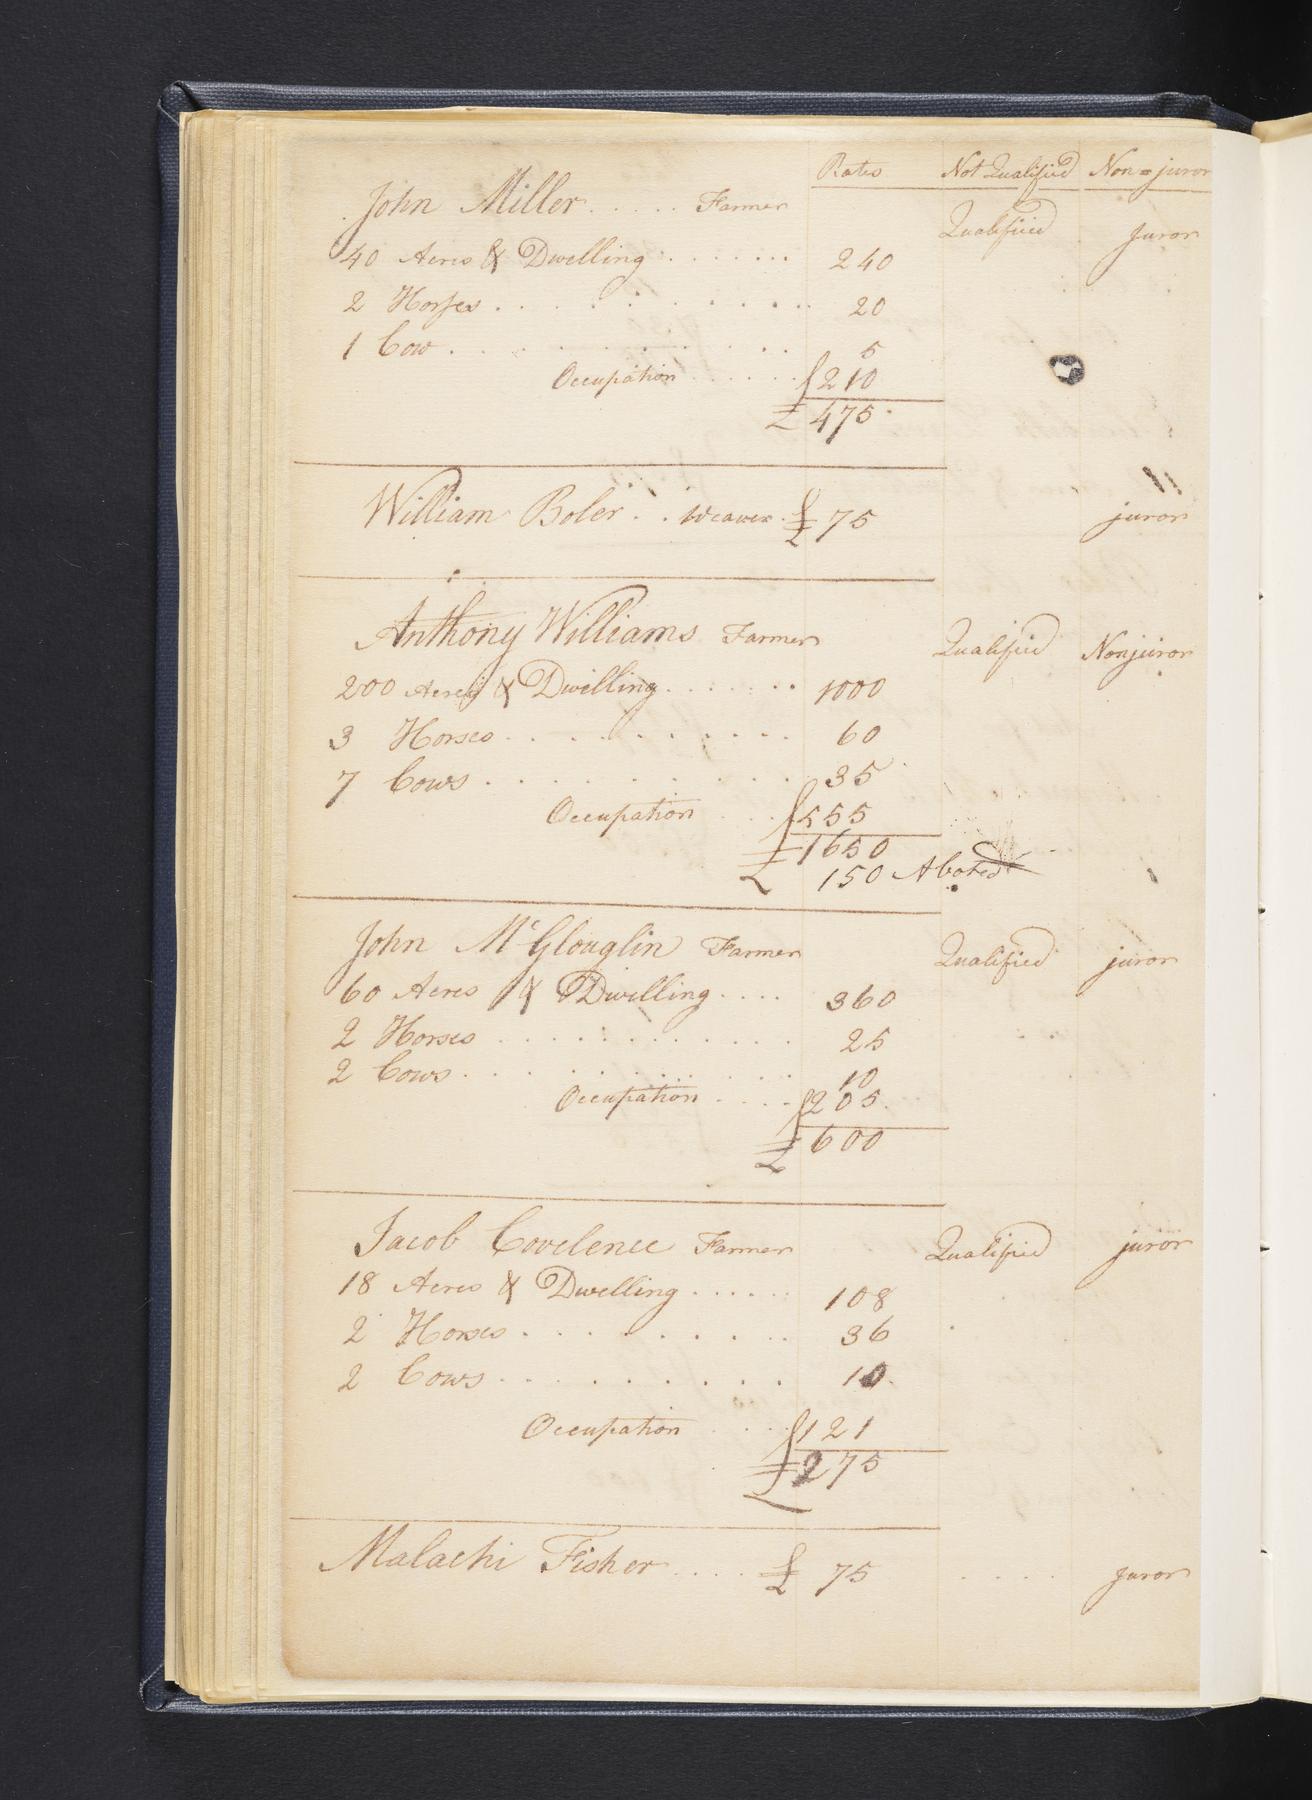 Rates Not Qualified Non=juror
John Miller..... Farmer Qualified Juror
40 Acres & Dwelling....... 240
2 Horses............. 20
1 Cow.......... 5
Occupation...... 210
£ 475
William Boler.. Weaver. £ 75 juror
Anthony Williams Farmer Qualified Nonjuror
200 Acres & Dwelling....... 1000
3 Horses........... 60
7 Cows.......... 35
Occupation... 555
£ 1650
150 Abated
John McGlouglin Farmer Qualified juror
60 Acres & Dwelling.... 360
2 Horses............ 25
2 Cows........... 10
Occupation.... 205
£ 600
Jacob Covelence Farmer Qualified juror
18 Acres & Dwelling...... 108
2 Horses.......... 36
2 Cows.......... 10
Occupation.... 121
£ 275
Malachi Fisher.... £ 75 .... Juror